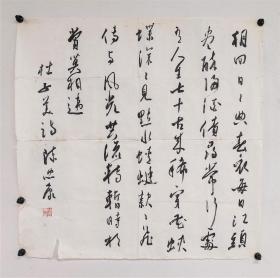 朝回日々典春衣每日江頭
盡醉歸酒債尋常行處
有人生七十古來稀穿花蛺
蝶深々見點水蜻蜓款々飛
傳与風光共流轉暫時相
賞莫相違
杜子美詩 陳忠康